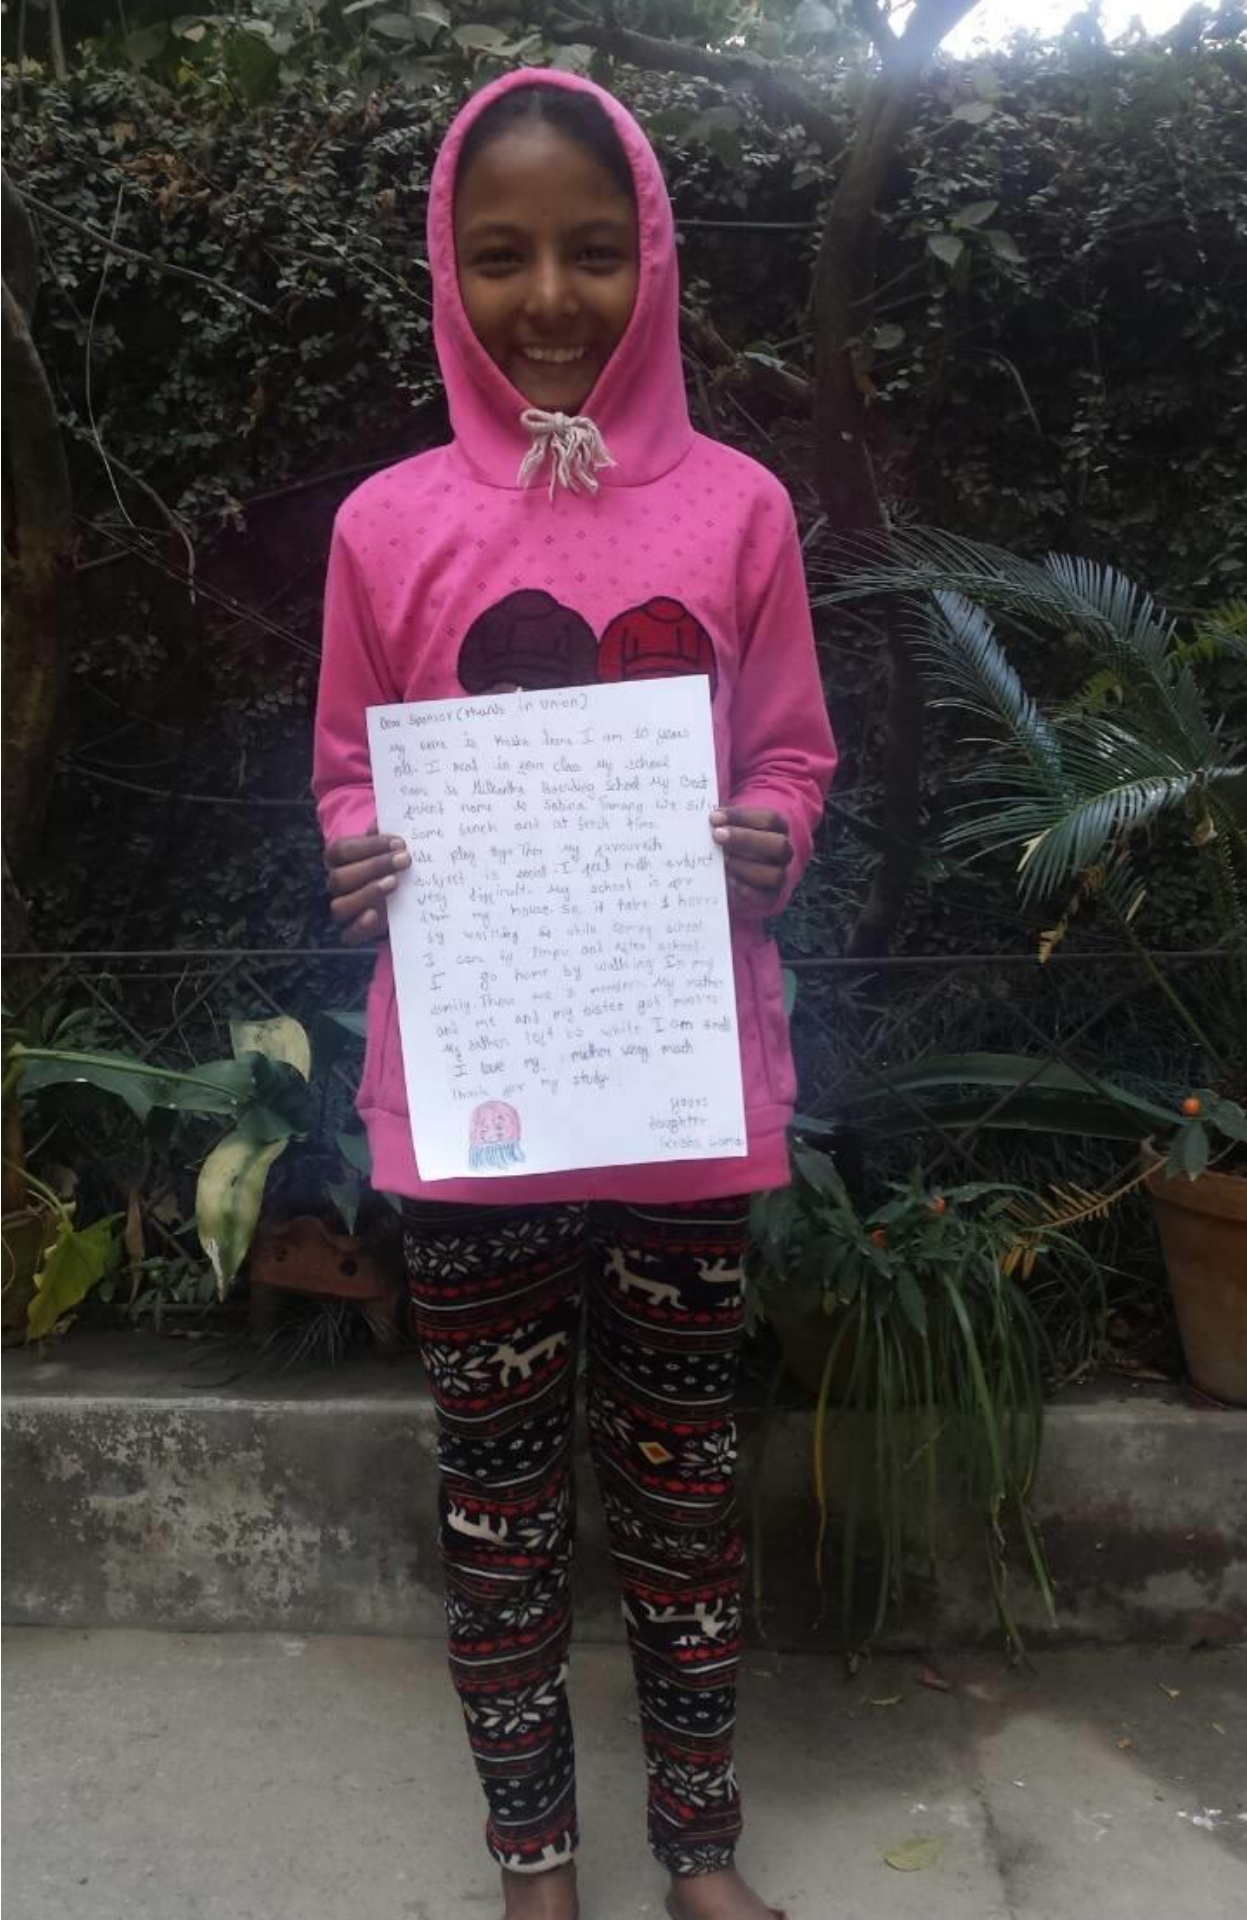 Dear Sponsor (Hands in Union)
My name is Krisha Lama I am 10 years
old. I read in four class My school
name is Nilkantha Boarding School My Best
friend name is Sabina Tamang We sit in
same bench and at break time
We play together My favourite
subject is social. I feel math subject
very difficult. My school is far
from my house. So, it take 1 hours
by walking So while coming school
I come by Tempu and after school.
I go home by walking In my
family. There are 3 members. My mother
and me and my sister got
My father left us while I am small
I love my mother very much
Thank for my study.
yours
daughter
Krisha Lama